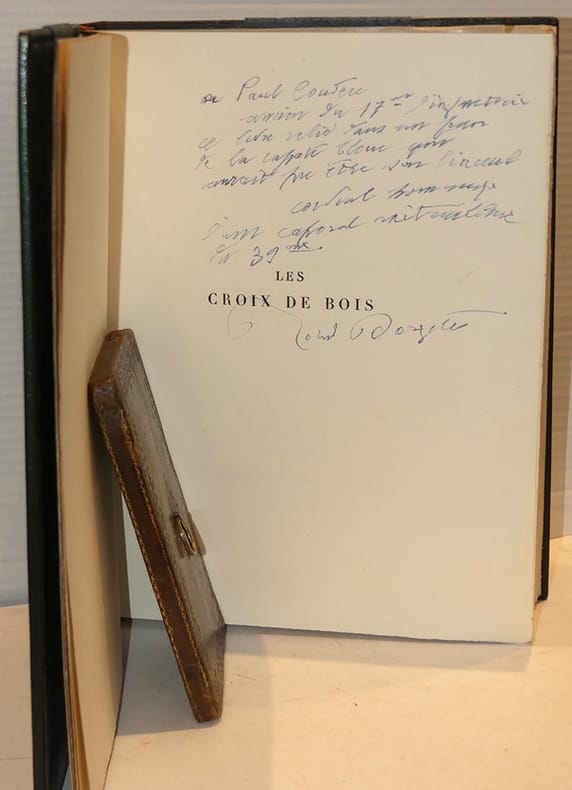 a Paul Couderc
ancien du 17me d'infanterie
ce livre relié dans un pan
de la capote bleue qui
aurait pu être son linceul
cordial hommage
d'un caporal mitrailleur
du 39me
LES
CROIX DE BOIS
Roland Dorgelès